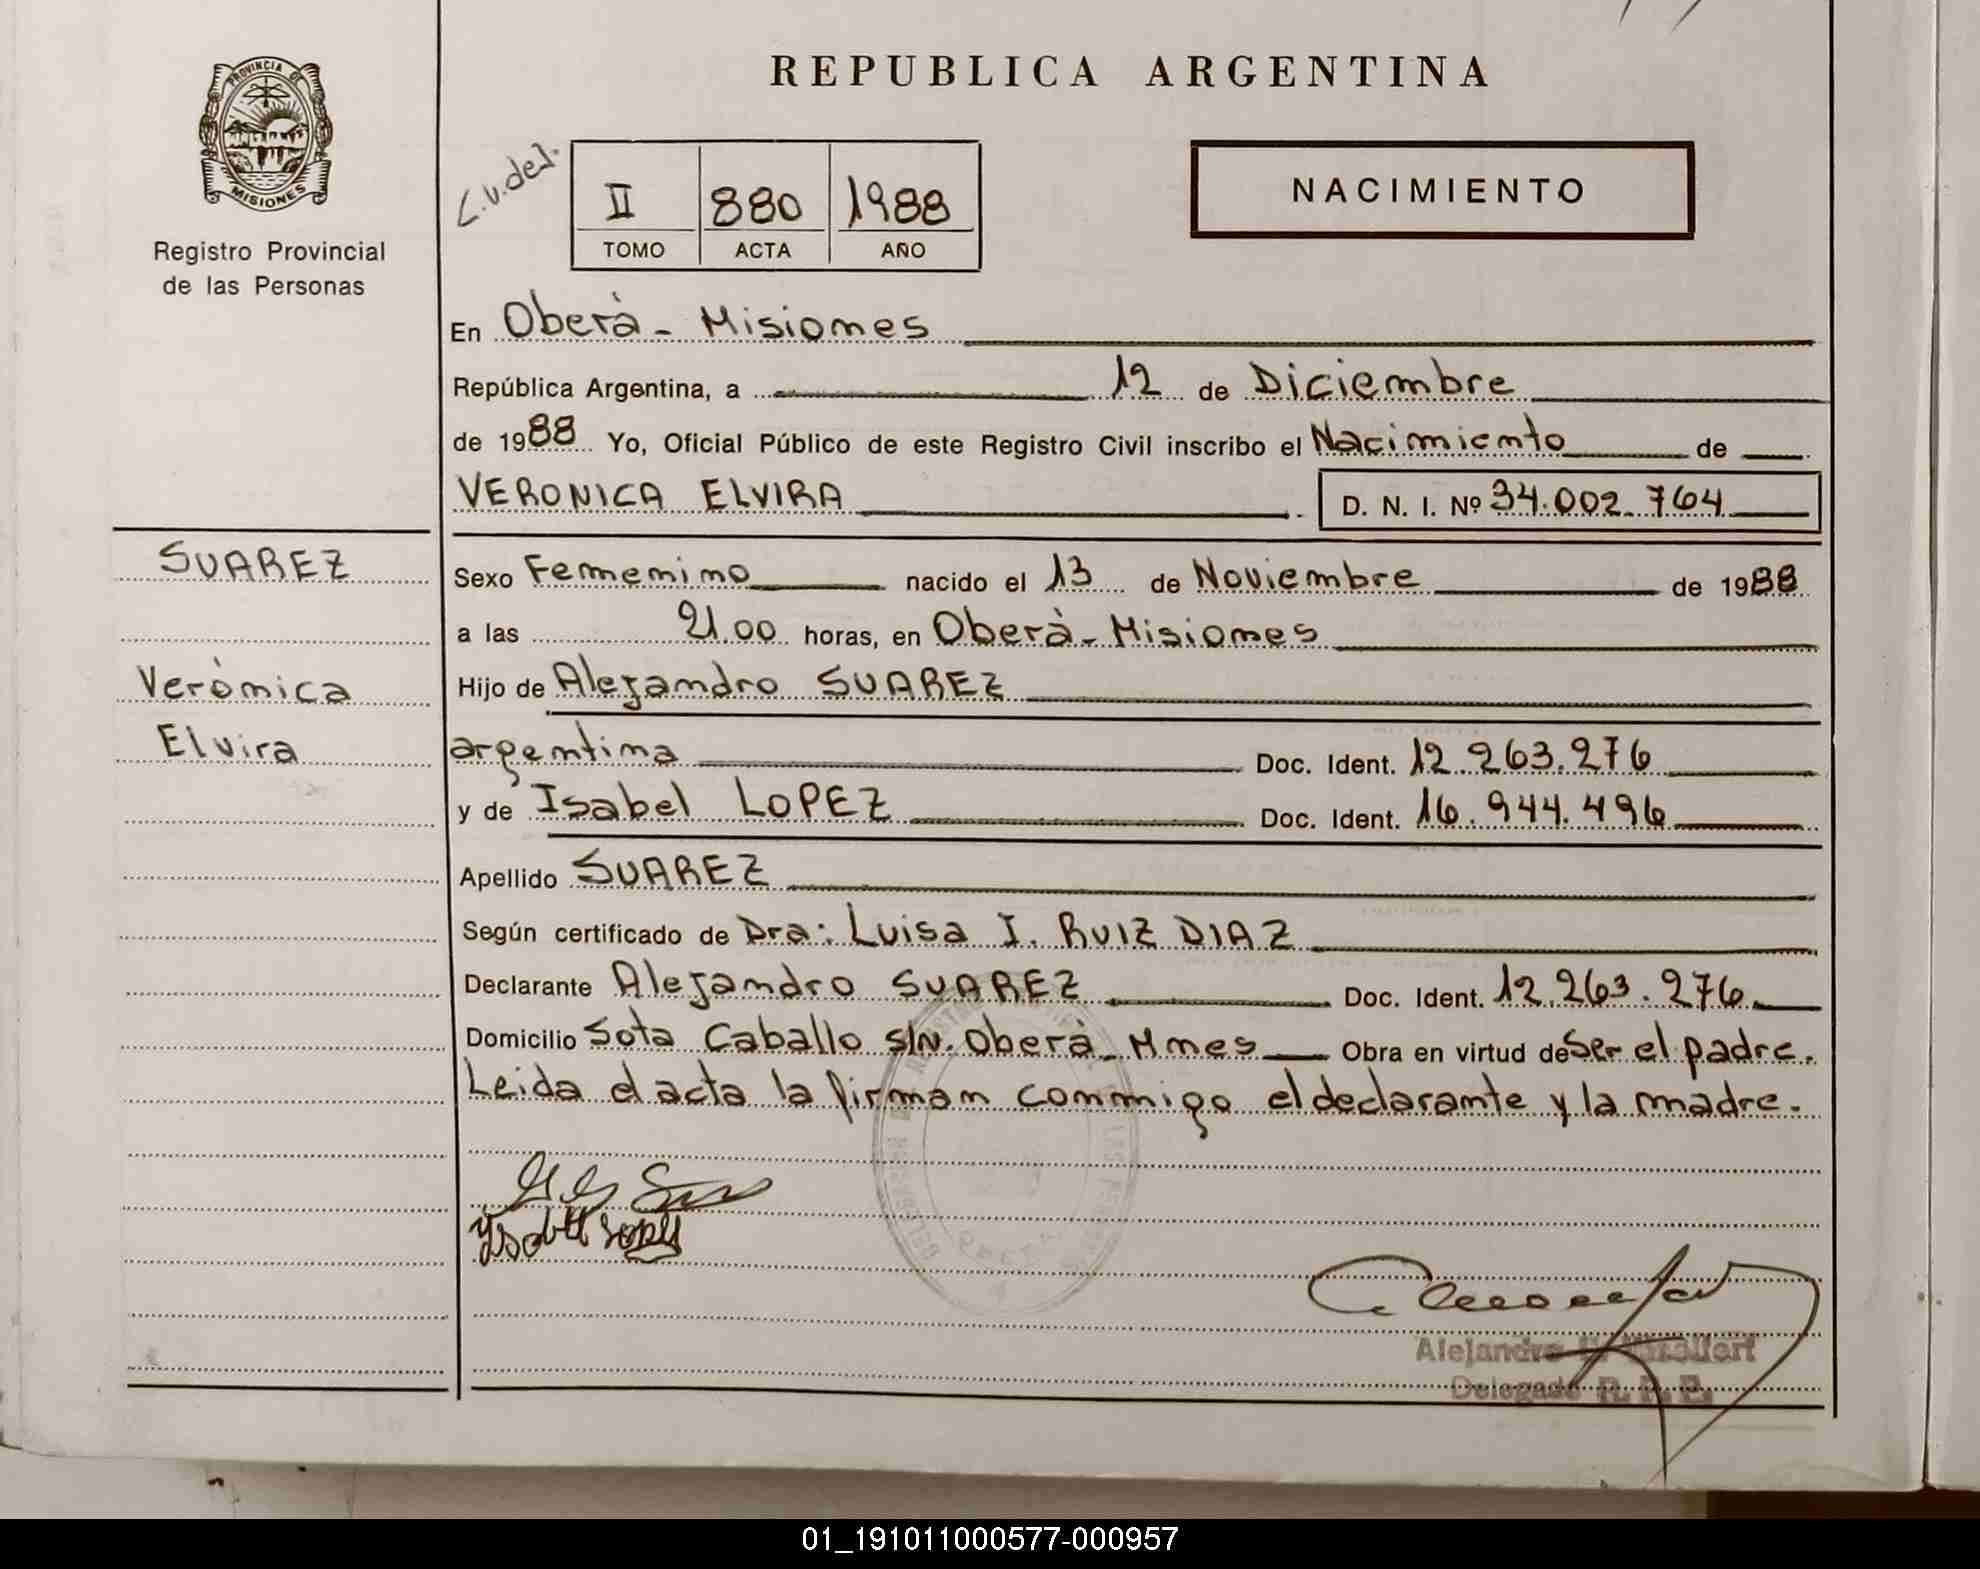 REPUBLICA ARGENTINA
PROVINCIA DE
MISIONES
Registro Provincial
de las Personas
II 880 1988
TOMO ACTA AÑO
NACIMIENTO
En Oberà - Misiones
República Argentina, a 12 de Diciembre
de 1988 Yo, Oficial Público de este Registro Civil inscribo el Nacimiento de
VERONICA ELVIRA D. N. I. Nº 34.002.764
SUAREZ
Verònica
Elvira
Sexo Femenino nacido el 13 de Noviembre de 1988
a las 21.00 horas, en Oberà - Misiones
Hijo de Alejandro SUAREZ
argentina Doc. Ident. 12.263.276
y de Isabel LOPEZ Doc. Ident. 16.944.496
Apellido SUAREZ
Según certificado de Dra: Luisa I. RUIZ DIAZ
Declarante Alejandro SUAREZ Doc. Ident. 12.263.276
Domicilio Sota Caballo s/n. Oberà - Mnes Obra en virtud de Ser el padre.
Leida el acta la firman conmigo el declarante y la madre.
Alejandro
Delegado R. P. P.
01_191011000577-000957